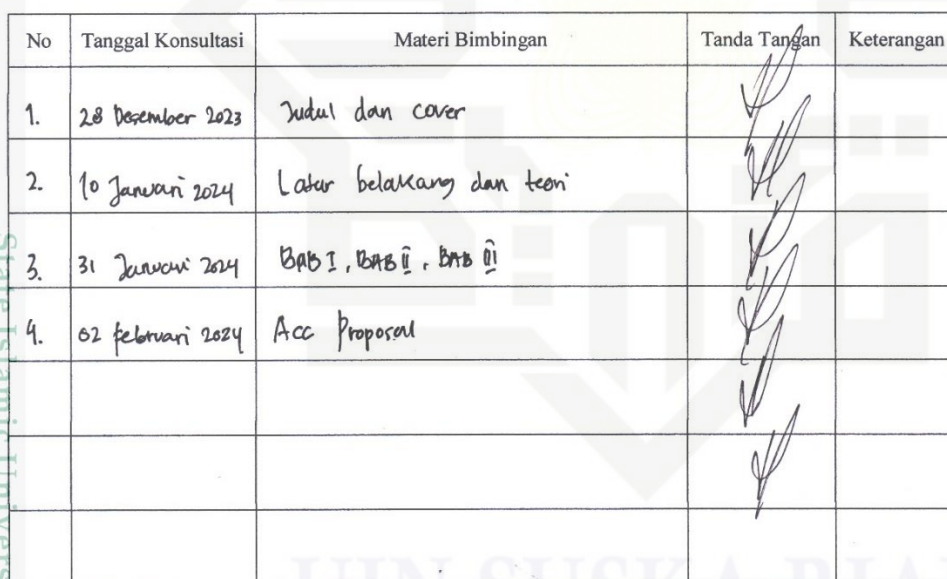 No Tanggal Konsultasi Materi Bimbingan Tanda Tangan Keterangan
1. 28 Desember 2023 Judul dan cover
2. 10 Januari 2024 Latar belakang dan teori
3. 31 Januari 2024 BAB I, BAB II, BAB III
4. 02 Februari 2024 Acc Proposal
State Islamic Univers
UIN SUSKA RIA